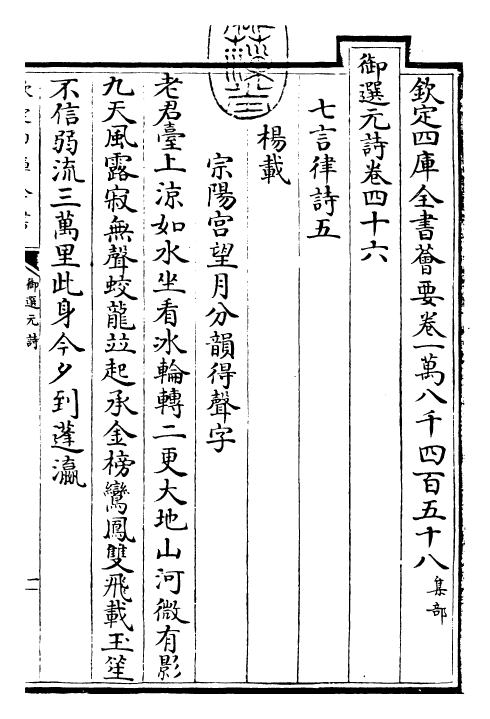 欽定四庫全書薈要卷一萬八千四百五十八 集部
御選元詩卷四十六
七言律詩五
楊載
宗陽宫望月分韻得聲字
老君臺上涼如水坐看冰輪轉二更大地山河微有影
九天風露寂無聲蛟龍竝起承金榜鸞鳳雙飛載玉笙
不信弱流三萬里此身今夕到蓬瀛
御選元詩